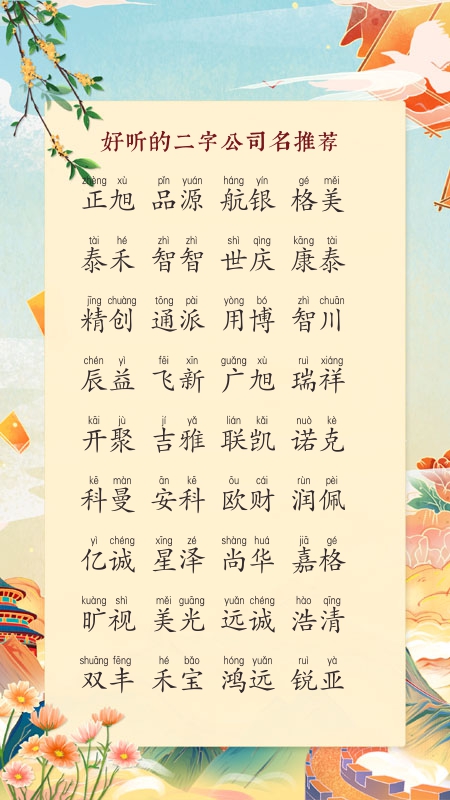 好听的二字公司名推荐
zhèng xù pǐn yuán háng yín gé měi
正旭 品源 航银 格美
tài hé zhì zhì shì qìng kāng tài
泰禾 智智 世庆 康泰
jīng chuàng tōng pài yòng bó zhì chuān
精创 通派 用博 智川
chén yì fēi xīn guǎng xù ruì xiáng
辰益 飞新 广旭 瑞祥
kāi jù jí yǎ lián kǎi nuò kè
开聚 吉雅 联凯 诺克
kē màn ān kē ōu cái rùn pèi
科曼 安科 欧财 润佩
yì chéng xīng zé shàng huá jiā gé
亿诚 星泽 尚华 嘉格
kuàng shì měi guāng yuǎn chéng hào qīng
旷视 美光 远诚 浩清
shuāng fēng hé bǎo hóng yuǎn ruì yà
双丰 禾宝 鸿远 锐亚